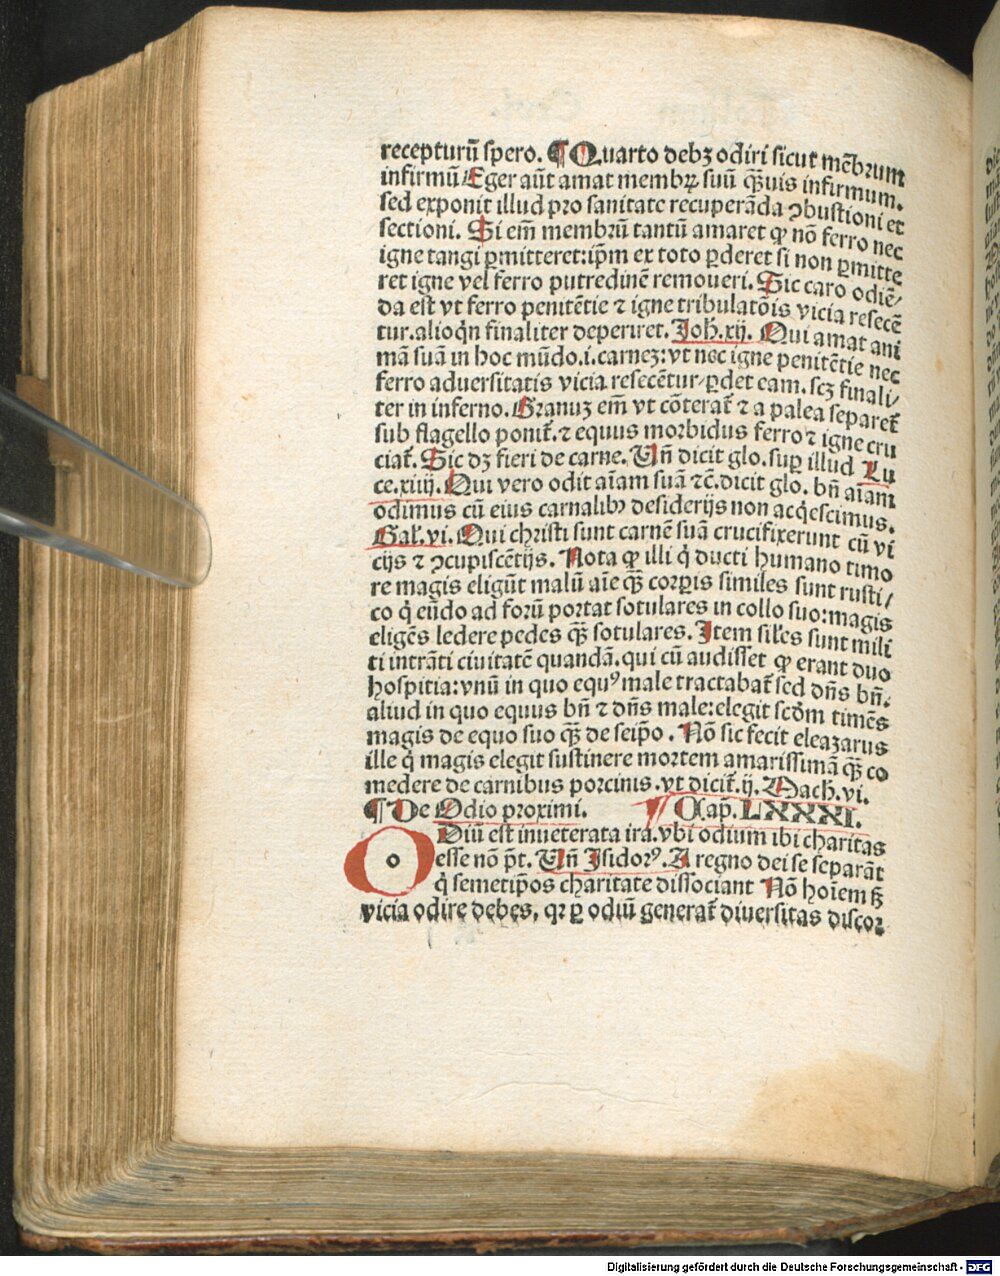 recepturū spero. ¶ Quarto debꝫ odiri sicut mēbrum
infirmū Eger aūt amat membꝝ suū qᷓuis infirmum.
sed exponit illud pro sanitate recuperāda ↄbustioni et
sectioni. Si em̄ membrū tantū amaret ꝙ nō ferro nec
igne tangi ꝑmitteret:ip̄m ex toto ꝑderet si non ꝑmitte
ret igne vel ferro putredinē remoueri. Sic caro odiē/
da est vt ferro penitētie ⁊ igne tribulatōis vicia resecē
tur.alioqͥn finaliter deperiret. Joh̄.xij. Qui amat ani
mā suā in hoc mūdo.i.carneꝫ:vt nec igne penitētie nec
ferro aduersitatis vicia resecētur/ꝑdet eam.scꝫ finali/
ter in inferno. Granuꝫ em̄ vt cōterat̄ ⁊ a palea separet̄
sub flagello ponit̄.⁊ equus morbidus ferro ⁊ igne cru
ciat̄. Sic dꝫ fieri de carne. Un̄ dicit glo.suꝑ illud Lu
ce.xiiij. Qui vero odit aīam suā ⁊c̄.dicit glo. bn̄ aīam
odimus cū eius carnalibꝰ desiderijs non acqͥescimus.
Gal̄.vi. Qui christi sunt carnē suā crucifixerunt cū vi
cijs ⁊ ↄcupiscētijs. Nota ꝙ illi qͥ ducti humano timo
re magis eligūt malū aīe qᷓꝫ corꝑis similes sunt rusti/
co qͥ eūdo ad forū portat sotulares in collo suo:magis
eligēs ledere pedes qᷓꝫ sotulares. Item sil̄es sunt mili
ti intrāti ciuitatē quandā.qui cū audisset ꝙ erant duo
hospitia:vnū in quo equꝰ male tractabat̄ sed dn̄s bn̄.
aliud in quo equus bn̄ ⁊ dn̄s male:elegit scd̄m timēs
magis de equo suo qᷓꝫ de seip̄o. Nō sic fecit eleazarus
ille qͥ magis elegit sustinere mortem amarissimā qᷓꝫ co
medere de carnibus porcinis.vt dicit̄.ij. Mach̄.vi.
¶ De Odio proximi. ¶ Cap̄. LXXXI.
Odiū est inueterata ira.vbi odium ibi charitas
esse nō p̄t. Un̄ Isidorꝰ. A regno dei se separāt
qͥ semetip̄os charitate dissociant Nō hoīem sꝫ
vicia odire debes, qꝛ ꝑ odiū generat̄ diuersitas discor
Digitalisierung gefördert durch die Deutsche Forschungsgemeinschaft - DFG